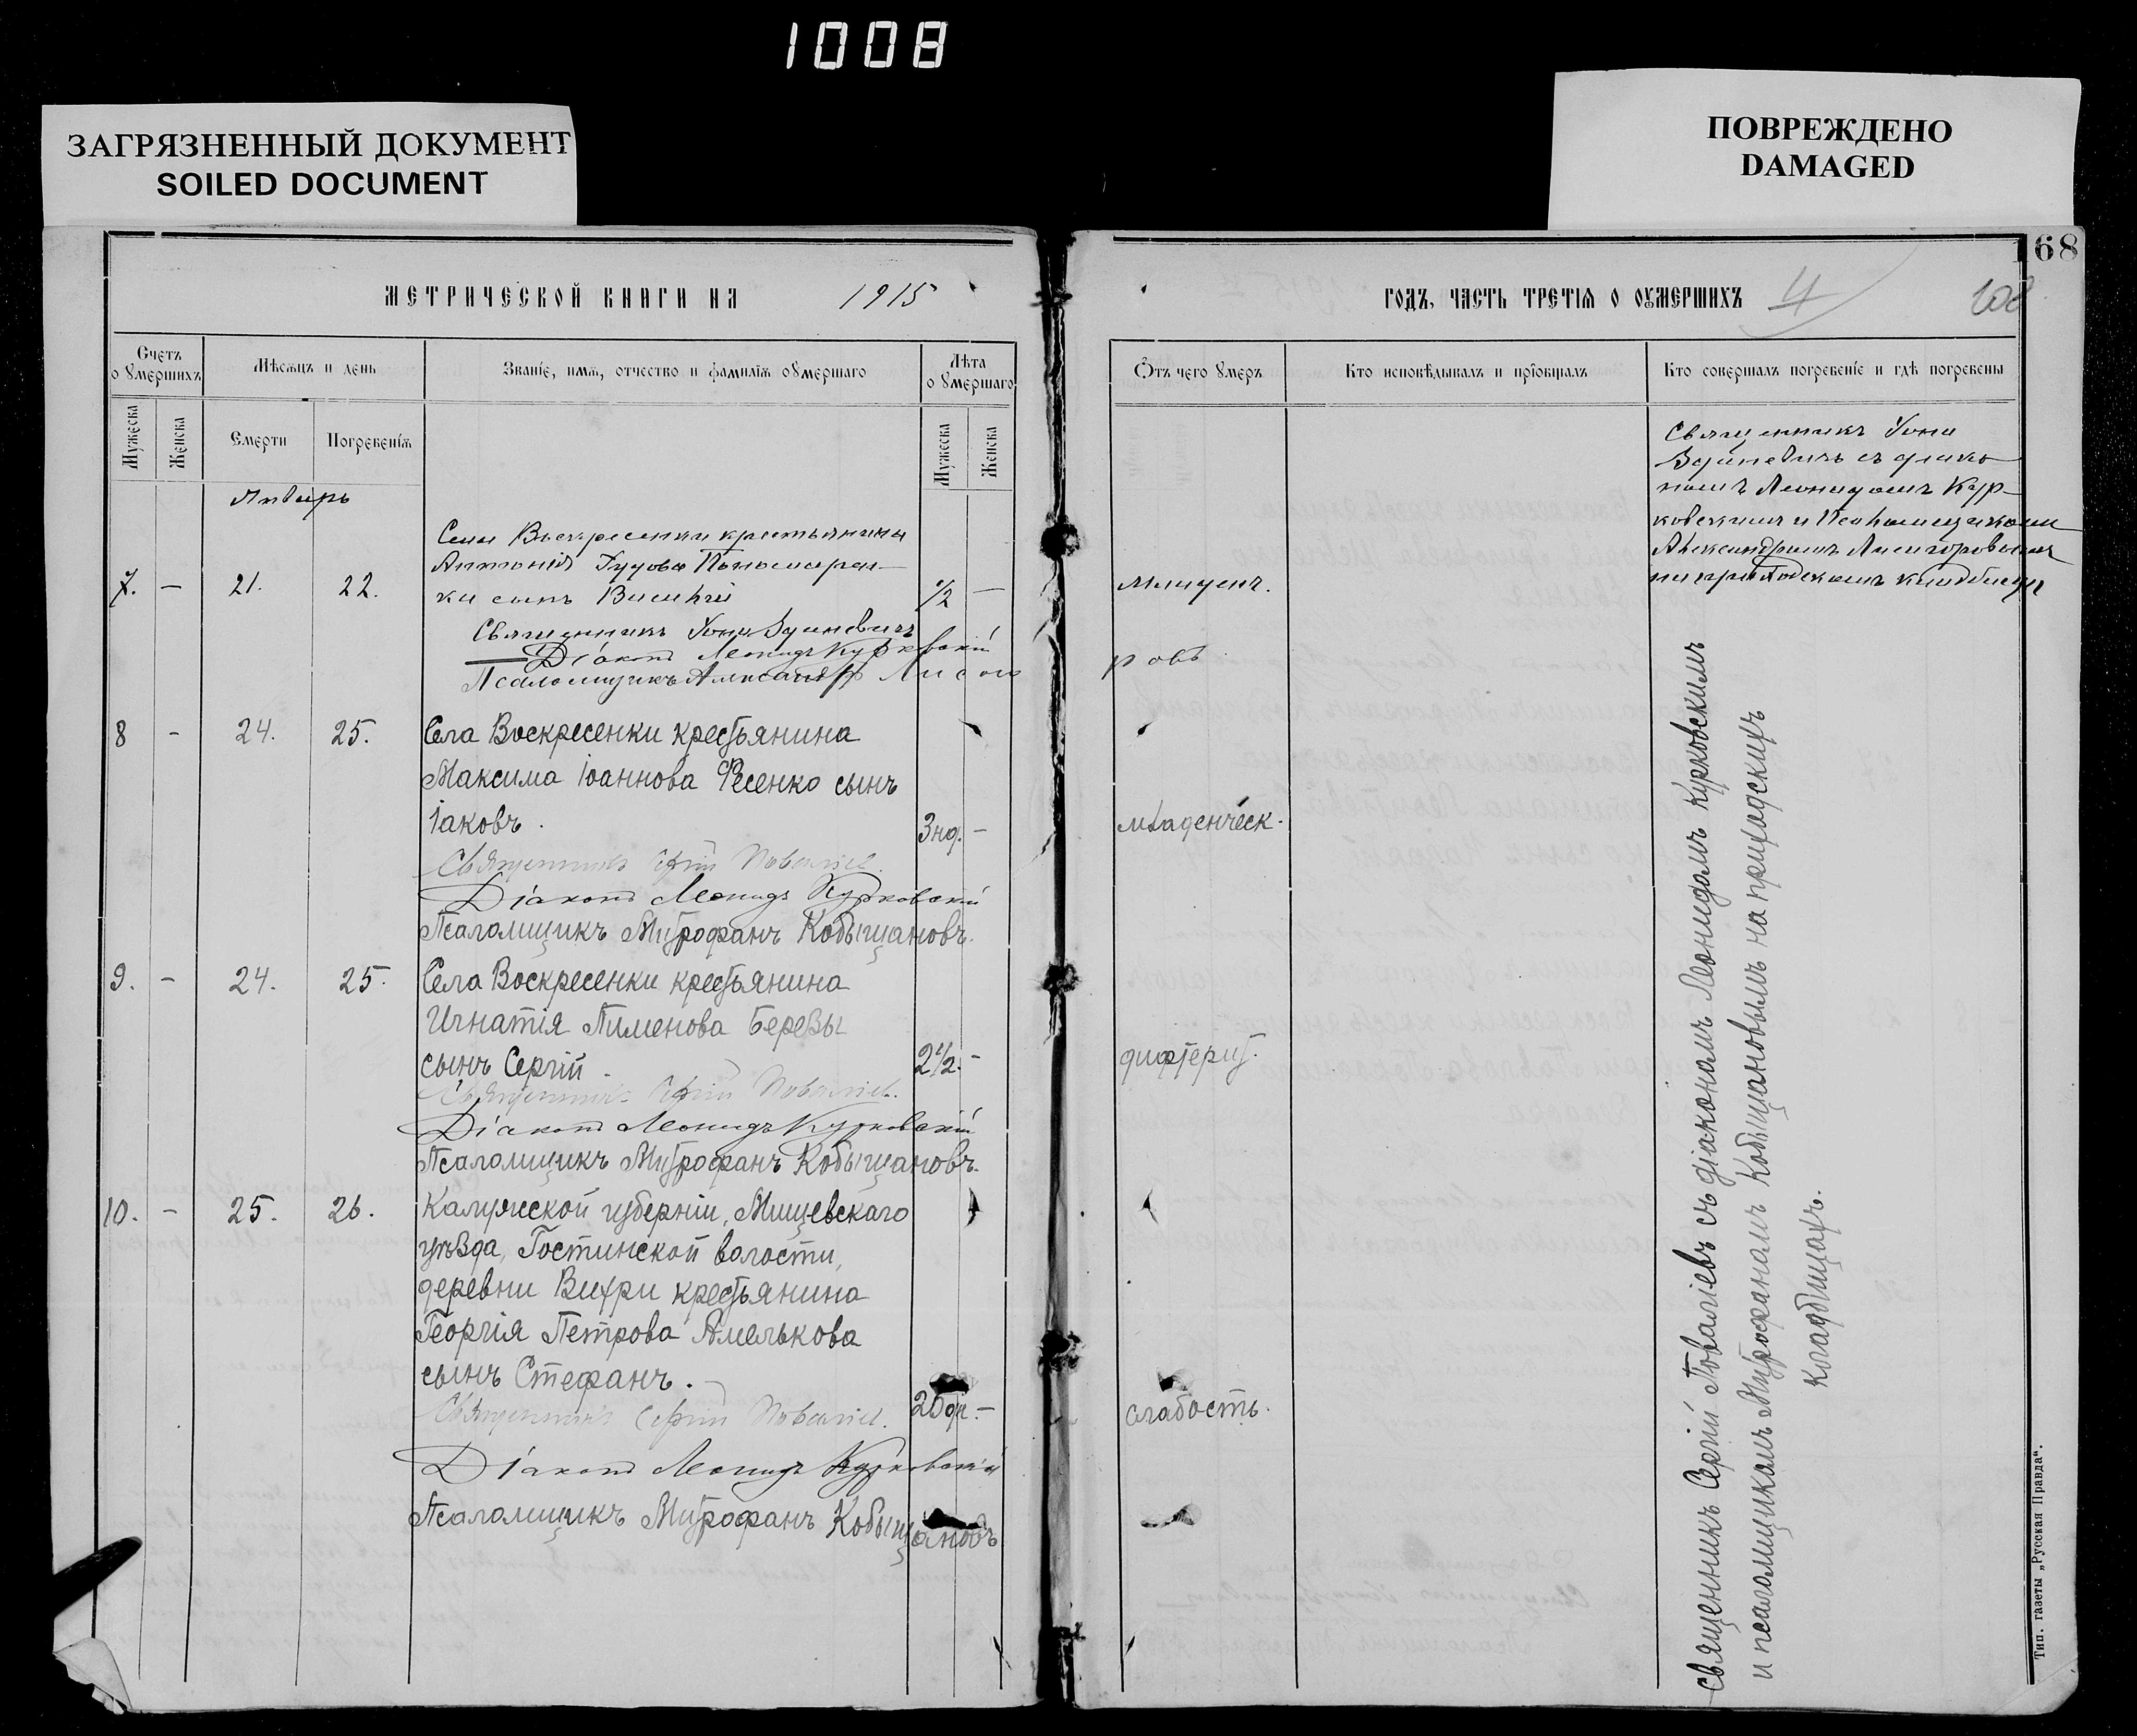 1008
ЗАГРЯЗНЕННЫЙ ДОКУМЕНТ
SOILED DOCUMENT
ПОВРЕЖДЕНО
DAMAGED
168
МЕТРИЧЕСКОЙ КНИГИ НА 1915
Счетъ о умершихъ
Мѣсяцъ и день
Званіе, имя, отчество и фамилія оумершаго
Лѣта о умершаго
Мужеска
Женска
Смерти
Погребенія
Мужеска
Женска
Январь
7. — 21. 22.
Села Воскресенки крестьянина
Антонія Пономарен-
ки сынъ Василій 1/2 —
Священникъ Іона
Діаконъ Леонидъ Курковскій
Псаломщикъ Александръ Лисого
8 - 24. 25. Села Воскресенки крестьянина
Максима Іоаннова Фесенко сынъ
Іаковъ. 3 нд. -
Священникъ Сергій Поваліевъ
Діаконъ Леонидъ Курковскій
Псаломщикъ Митрофанъ Кобыщановъ.
9. - 24. 25. Села Воскресенки крестьянина
Игнатія Пименова Березы
сынъ Сергій 2 1/2. -
Священникъ Сергій Поваліевъ.
Діаконъ Леонидъ Курковскій
Псаломщикъ Митрофанъ Кобыщановъ.
10. - 25. 26. Калужской губерніи, Мещевскаго
уѣзда, Гостинской волости,
деревни Вихри крестьянина
Георгія Петрова Амелькова
сынъ Стефанъ. -
Священникъ Сергій Поваліевъ.
Діаконъ Леонидъ Курковскій
Псаломщикъ Митрофанъ Кобыщановъ
ГОДЪ, ЧАСТЬ ТРЕТІЯ О ОУМЕРШИХЪ 4
Отъ чего умеръ
Кто исповѣдывалъ и пріобщалъ
Кто совершалъ погребеніе и гдѣ погребены
Священникъ Іона
съ діако-
номъ Леонидомъ Кур-
ковскимъ и Псаломщикомъ
Александромъ Лисогоровымъ
на приходскомъ кладбищѣ
младенч.
ровъ
младенческ.
дифтерит.
слабость.
Священникъ Сергій Поваліевъ съ діакономъ Леонидомъ Курковскимъ
и псаломщикомъ Митрофаномъ Кобыщановымъ на приходскихъ
кладбищахъ.
Тип. газеты „Русская Правда".